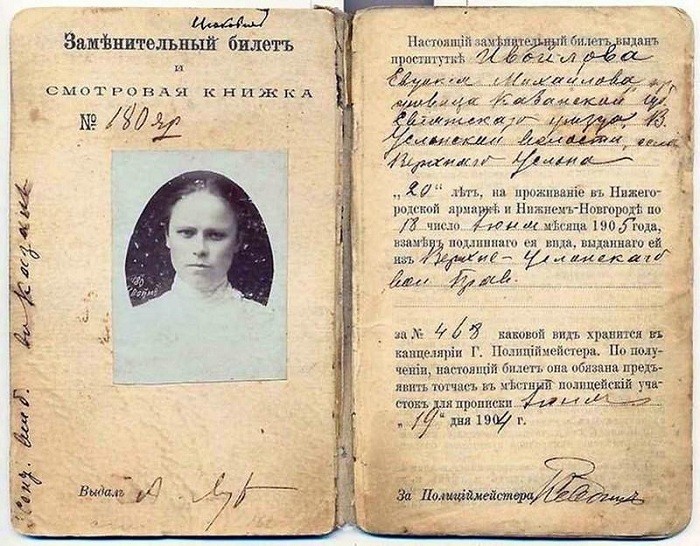 Замѣнительный билетъ
и
СМОТРОВАЯ КНИЖКА
№ 180 яр
Выдалъ
Настоящій замѣнительный билетъ выданъ
проституткѣ Ивойлова
Евдокія Михайлова, кр
Казанской гу.
уѣзда, В.
Услонской волости, села
Верхняго Услона
„20“ лѣтъ, на проживаніе въ Нижего-
родской ярмаркѣ и Нижнемъ-Новгородѣ по
18 число Іюня мѣсяца 1905 года,
взамѣнъ подлиннаго ея вида, выданнаго ей
изъ Верхне-Услонскаго
вол Прав.
за № 468 каковой видъ хранится въ
канцеляріи Г. Полиціймейстера. По полу-
ченіи, настоящій билетъ она обязана предъ-
явить тотчасъ въ мѣстный полицейскій уча-
стокъ для прописки Іюня
„19“ дня 1904 г.
За Полиціймейстера